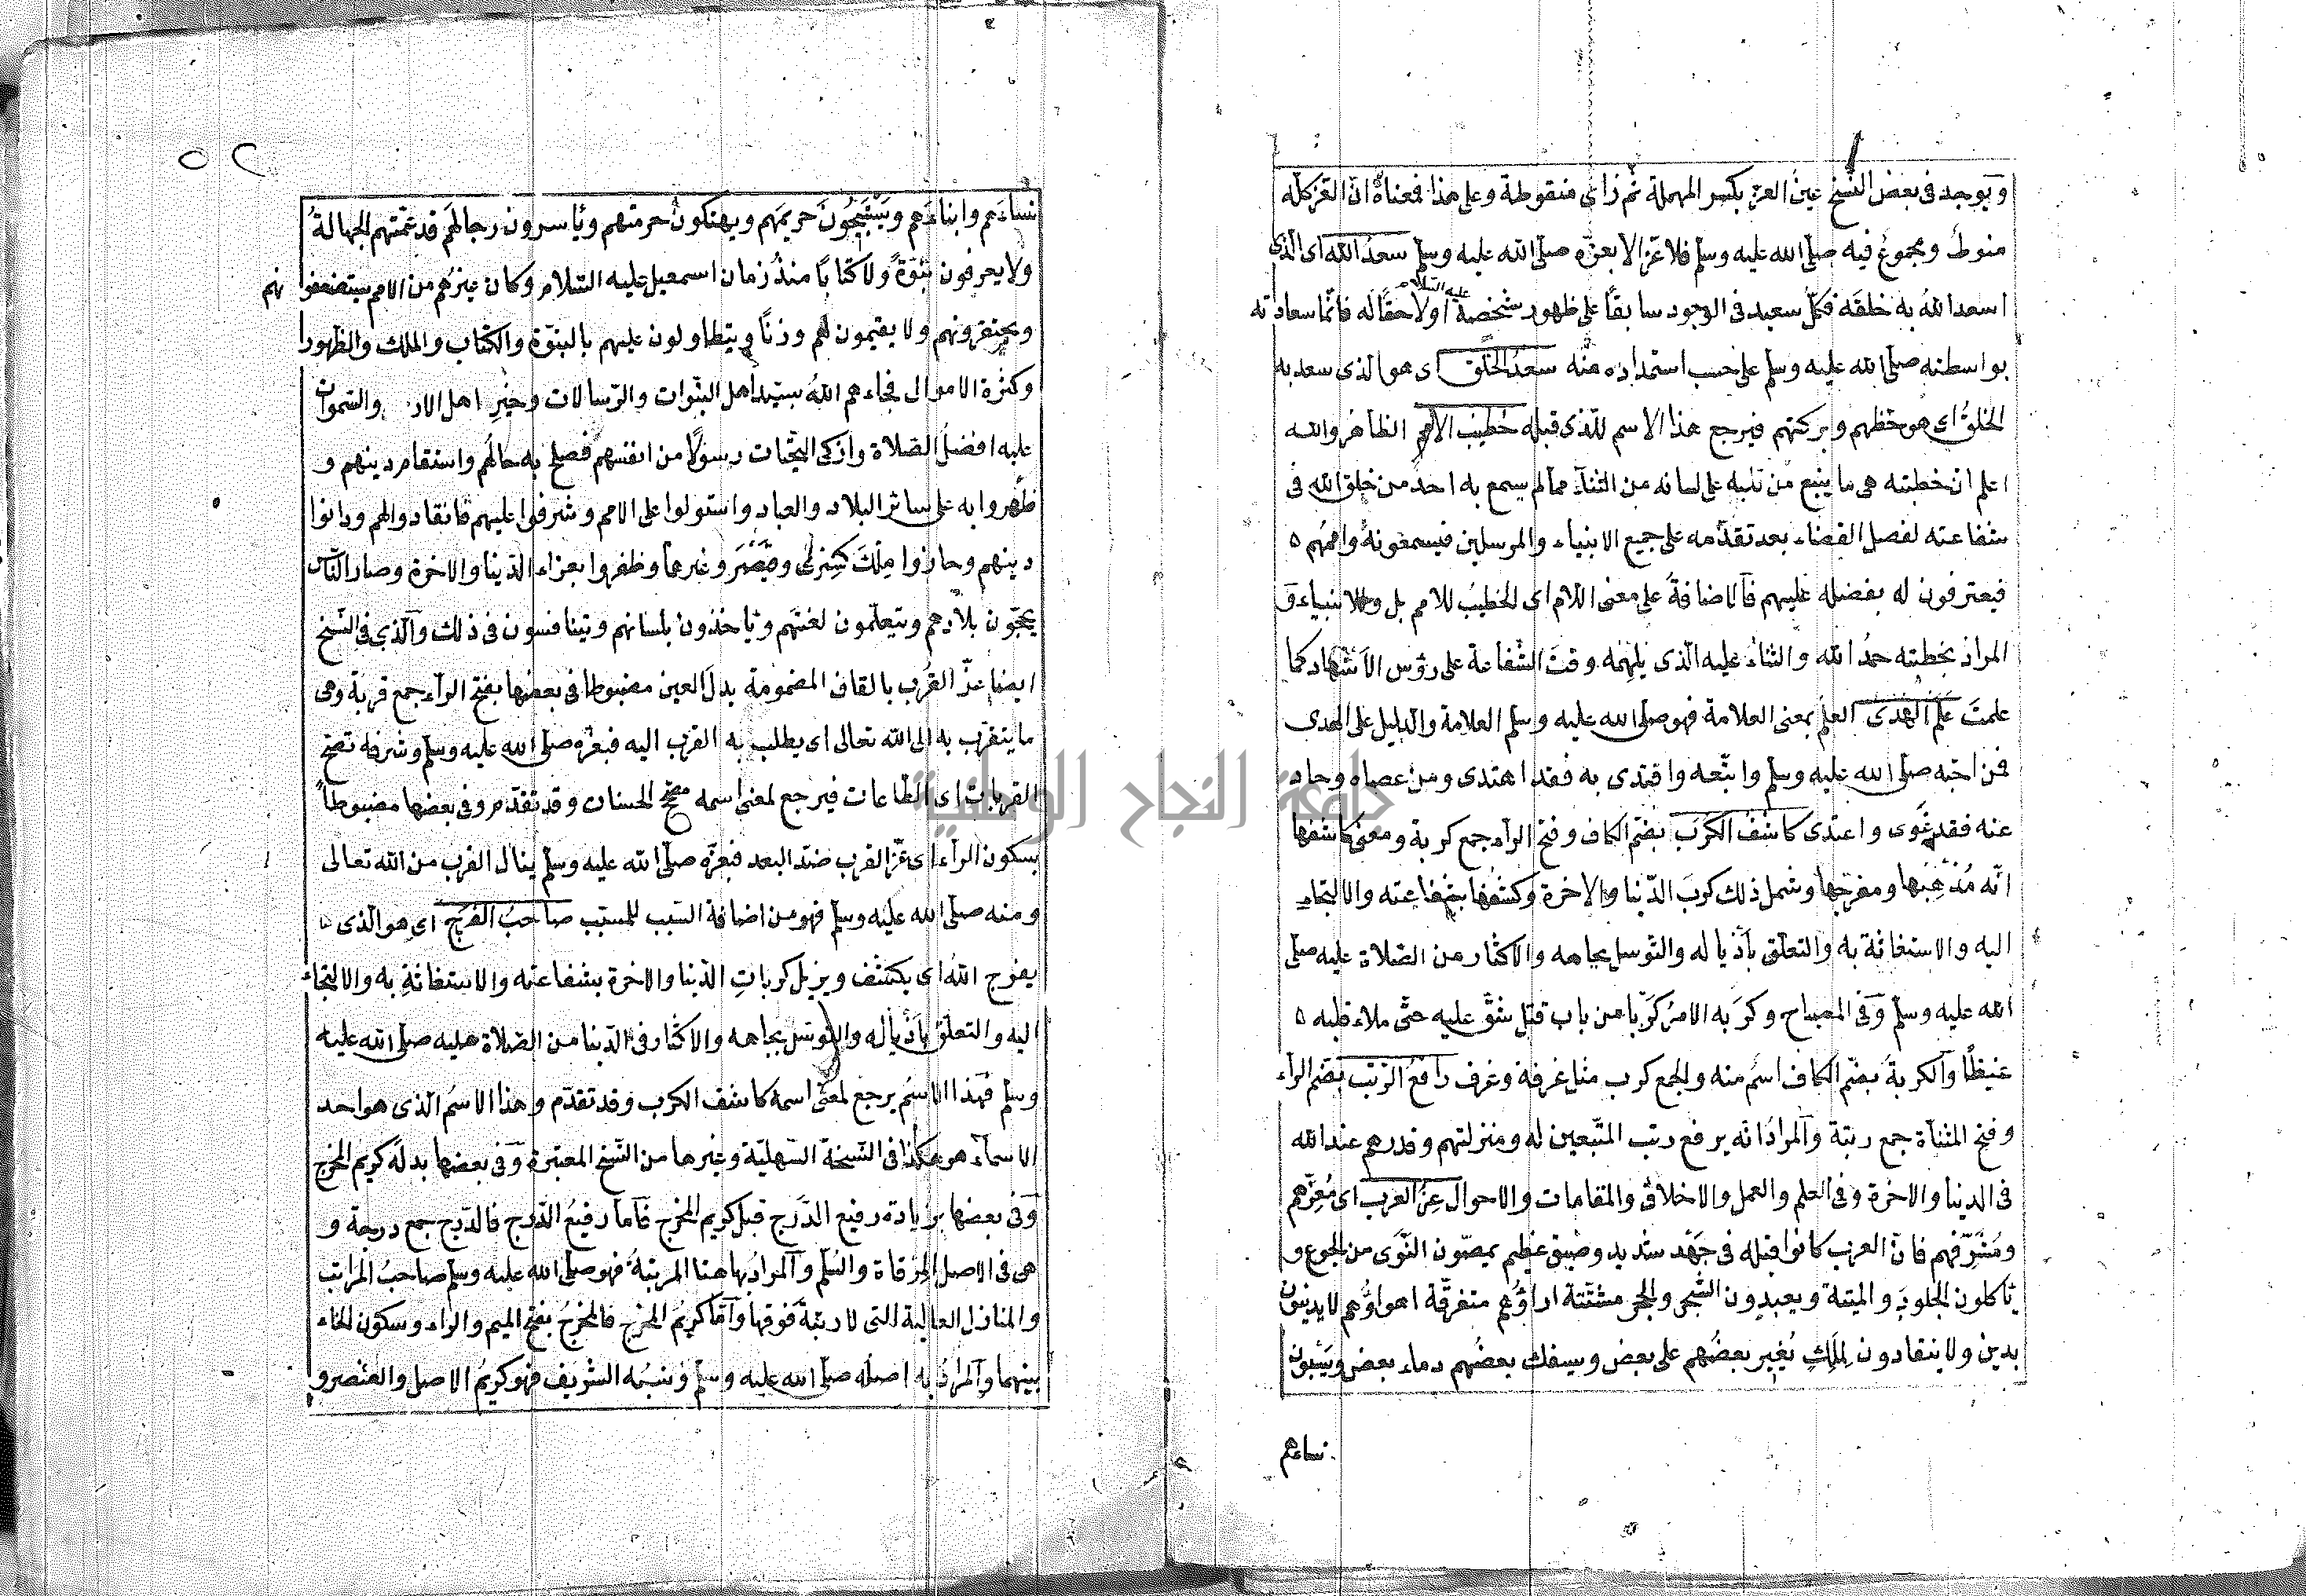 ويوجد فى بعض النسخ عين العزّ بكسر المهملة ثم زاى منقوطة وعلى هذا فمعناه انّ العز كله
منوط ومجموع فيه صلى الله عليه وسلم فلا عزّ الا بعزّه صلى الله عليه وسلم سعدُ الله اى الذى
اسعد اللهُ به خلقَه فكلّ سعيد فى الوجود سابقًا على ظهور شخصه عليه السلام او لاحقًا له فانّما سعادته
بواسطته صلى الله عليه وسلم على حسب استمداده منه سعدُ الخلق اى هو الذى سعد به
الخلق اى هو حظهم وبركتهم فيرجع هذا الاسم للذى قبله خطيب الأمم الظاهر والله
اعلم ان خطبته هى ما ينبع من قلبه على لسانه من الثناء مما لم يسمع به احد من خلق الله فى
شفاعته لفصل القضاء بعد تقدّمه على جميع الانبياء والمرسلين فيسمعونه واممهم ٥
فيعترفون له بفضله عليهم فالاضافةُ على معنى اللام اى الخطيبُ للامم بل وللانبياء و
المراد بخطبته حمدُ الله والثناءُ عليه الّذى يلهمه وقتَ الشّفاعة على رؤس الاشهاد كما
علمتَ عَلم الهدى العلمُ بمعنى العلامة فهو صلى الله عليه وسلم العلامة والدليل على الهدى
فمن احبّه صلى الله عليه وسلم واتّبعه واقتدى به فقد اهتدى ومن عصاه وحاد
عنه فقد غوى واعتدى كاشفُ الكُرَب بضمّ الكاف وفتح الراء جمع كربة ومعنى كاشفها
انّه مُذهبُها ومفرجها وشمل ذلك كربَ الدّنيا والاخرة وكشفُها بشفاعته والالتجاء
اليه والاستغاثة به والتعلق بأذياله والتّوسل بجاهه والاكثار من الصّلاة عليه صلى
الله عليه وسلم وفى المصباح وكرَبه الامرُ كَرْبا من باب قتل شقّ عليه حتّى ملاء قلبه ٥
غيظًا والكربةُ بضمّ الكاف اسمُ منه والجمع كرب مثل غرفة وغرف رافعُ الرّتب بضم الراء
وفتح المثناة جمع رتبة والمرادُ انّه يرفع رتب المتّبعين له ومنزلتهم وقدرهم عند الله
فى الدنيا والاخرة وفى العلم والعمل والاخلاق والمقامات والاحوال عِزُّ العَرب اى مُعِزّهم
ومُشرّفهم فانّ العرب كانوا قبله فى جَهْد شديد وضيق عظيم يمصّون النّوَى من الجوع و
يأكلون الجلودَ والميتة ويعبدون الشّجر والحجر مشتّتة اراؤهم متفرقة اهواؤهم لا يدينون
بدين ولا ينقادون لملك يُغير بعضُهم على بعض ويسفك بعضُهم دماء بعض ويَسْبون
نساءهم
٥٢
نساءَهم وابناءَهم ويَسْتبيحُون حريمَهم ويهتكون حرمتهم ويأسرون رجالهم قد عمّتهم الجهالةُ
ولا يعرفون نبوّةً ولا كتابًا منذُ زمان اسمعيل عليه السّلام وكان غيرُهم من الامم يستضعفونهم
ويحتقرونهم ولا يقيمون لهم وزنًا ويتطاولون عليهم بالنبوّة والكتاب والملك والظهور
وكثرة الاموال فجاءهم اللهُ بسيّد اهل النبّوات والرّسالات وخيرِ اهل الار والسّموات
عليه افضلُ الصّلاة وازكى التّحيّات رسولًا من انفسهم فصلح به حالُهم واستقام دينهم و
ظهروا به على سائر البلاد والعباد واستولوا على الامم وشرفوا عليهم فانقادوا لهم ودانوا
دينهم وحازوا مِلكَ كسْرى وقيصَر وغيرهما وظفروا بعزاء الدّنيا والاخرة وصار النّاس
يحجّون بلادهم ويتعلّمون لغتَهم ويأخذون بلسانهم ويتنافسون فى ذلك والّذي فى النّسخ
ايضا عزّ القُرَب بالقاف المضمومة بدلَ العين مضبوطا فى بعضها بفتح الراء جمع قربة وهى
ما يتقرّب به الى الله تعالى اى يطلب به القربُ اليه فبعزّه صلى الله عليه وسلم وشرفه تصحّ
القربات اى الطّاعات فيرجع لمعنى اسمه مصحّح الحسنات وقد تقدّم وفى بعضها مضبوطاً
بسكون الراء اى عزّ القرب ضدّ البعد فبعزّه صلى الله عليه وسلم ينال القرب من الله تعالى
ومنه صلى الله عليه وسلم فهو من اضافة السّبب للمسبب صاحبُ الفَرَج اى هو الّذى
يفرج اللهُ اى يكشف ويزيل كرباتِ الدّنيا والاخرة بشفاعته والاستغاثةِ به والالتجاء
اليه والتعلّق بأذياله والتوسّل بجاهه والاكثار فى الدّنيا من الصّلاة عليه صلى الله عليه
وسلم فهذا الاسمُ يرجع لمعنى اسمه كاشف الكرب وقد تقدّم وهذا الاسمُ الّذى هو احد
الاسماء هو هكذا فى النّسخة السّهليّة وغيرها من النّسخ المعتبرة وفى بعضها بدله كريم المخرج
وفى بعضها بزيادة رفيع الدَّرَج قبل كريم المخرج فأما رفيعُ الدّرج فالدّرج جمع درجة و
هى فى الاصل المرقاة والسُّلم والمرادُ بها هنا المرتبةُ فهو صلى الله عليه وسلم صاحبُ المراتب
والمنازل العالية التى لا رتبةً فوقها وأمّا كريمُ المخرج فالمخرجُ بفتح الميم والراء وسكون الخاء
بينهما والمرادُ به اصلُه صلى الله عليه وسلم ونسبُه الشّريف فهو كريمُ الاصل والعنصر و
جامعة النجاح الوطنية